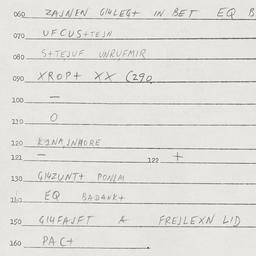 060 ZAJNEN GI4LEGT IN BET EQ B
070 UFCUSTEJN
080 STEJUF UNRUFMIR
090 XROPT XX (290
100 —
110 O
120
121 — 122 +
130 GI4ZUNTT PONIM
140 EQ BADANKT
150 GI4FAJFT A FREJLEXN LID
160 PACT .